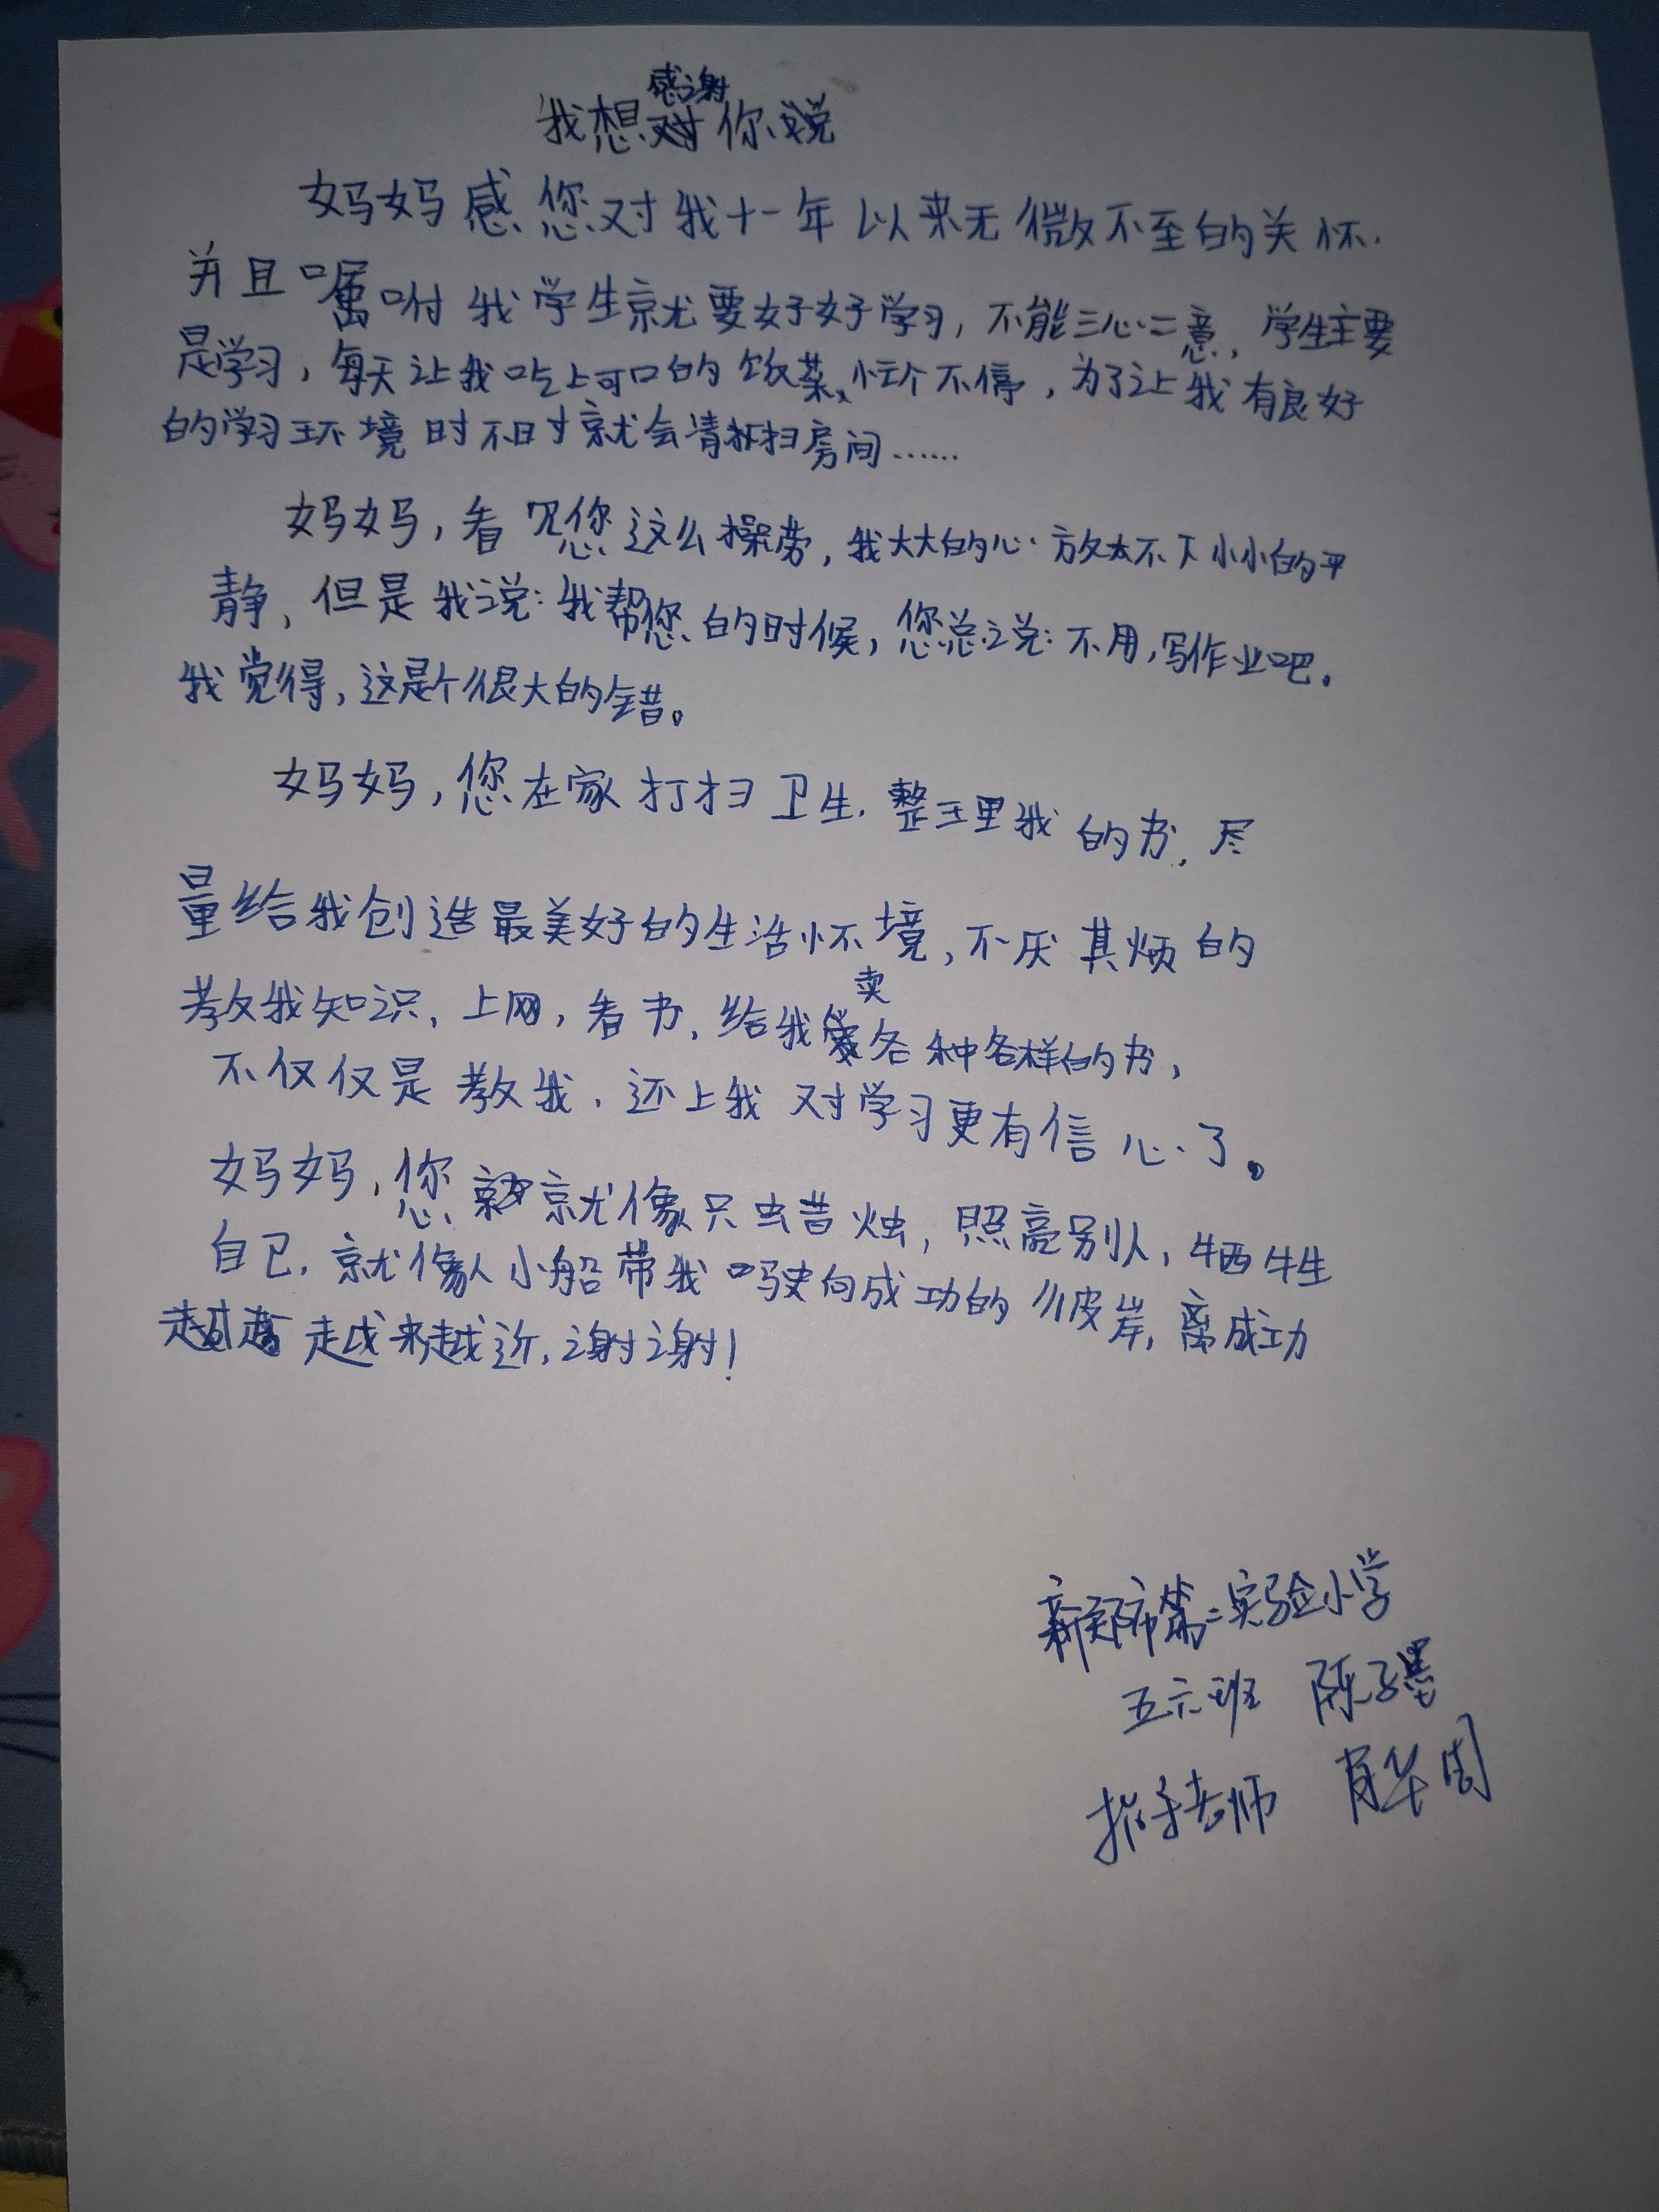 我想感谢你说
妈妈感您对我十一年以来无微不至的关怀.
并且嘱咐我学生就要好好学习,不能三心二意,学生主要
是学习,每天让我吃上可口的饭菜、忙个不停,为了让我有良好
的学习环境时不时就会清扫房间……
妈妈,看见您这么操劳,我大大的心放不下小小的平
静,但是我说:我帮您的时候,您总说:不用,写作业吧。
我觉得,这是个很大的错。
妈妈,您在家打扫卫生.整理我的书,尽
量给我创造最美好的生活怀境,不厌其烦的
教我知识,上网,看书,给我卖各种各样的书,
不仅仅是教我.还上我对学习更有信心了。
妈妈,您就像只蜡烛,照亮别人,牺牲
自己.就像小船带我驶向成功的彼岸,离成功
越来越近,谢谢!
新郑市第二实验小学
五六班 陈子墨
指导老师 肖华周